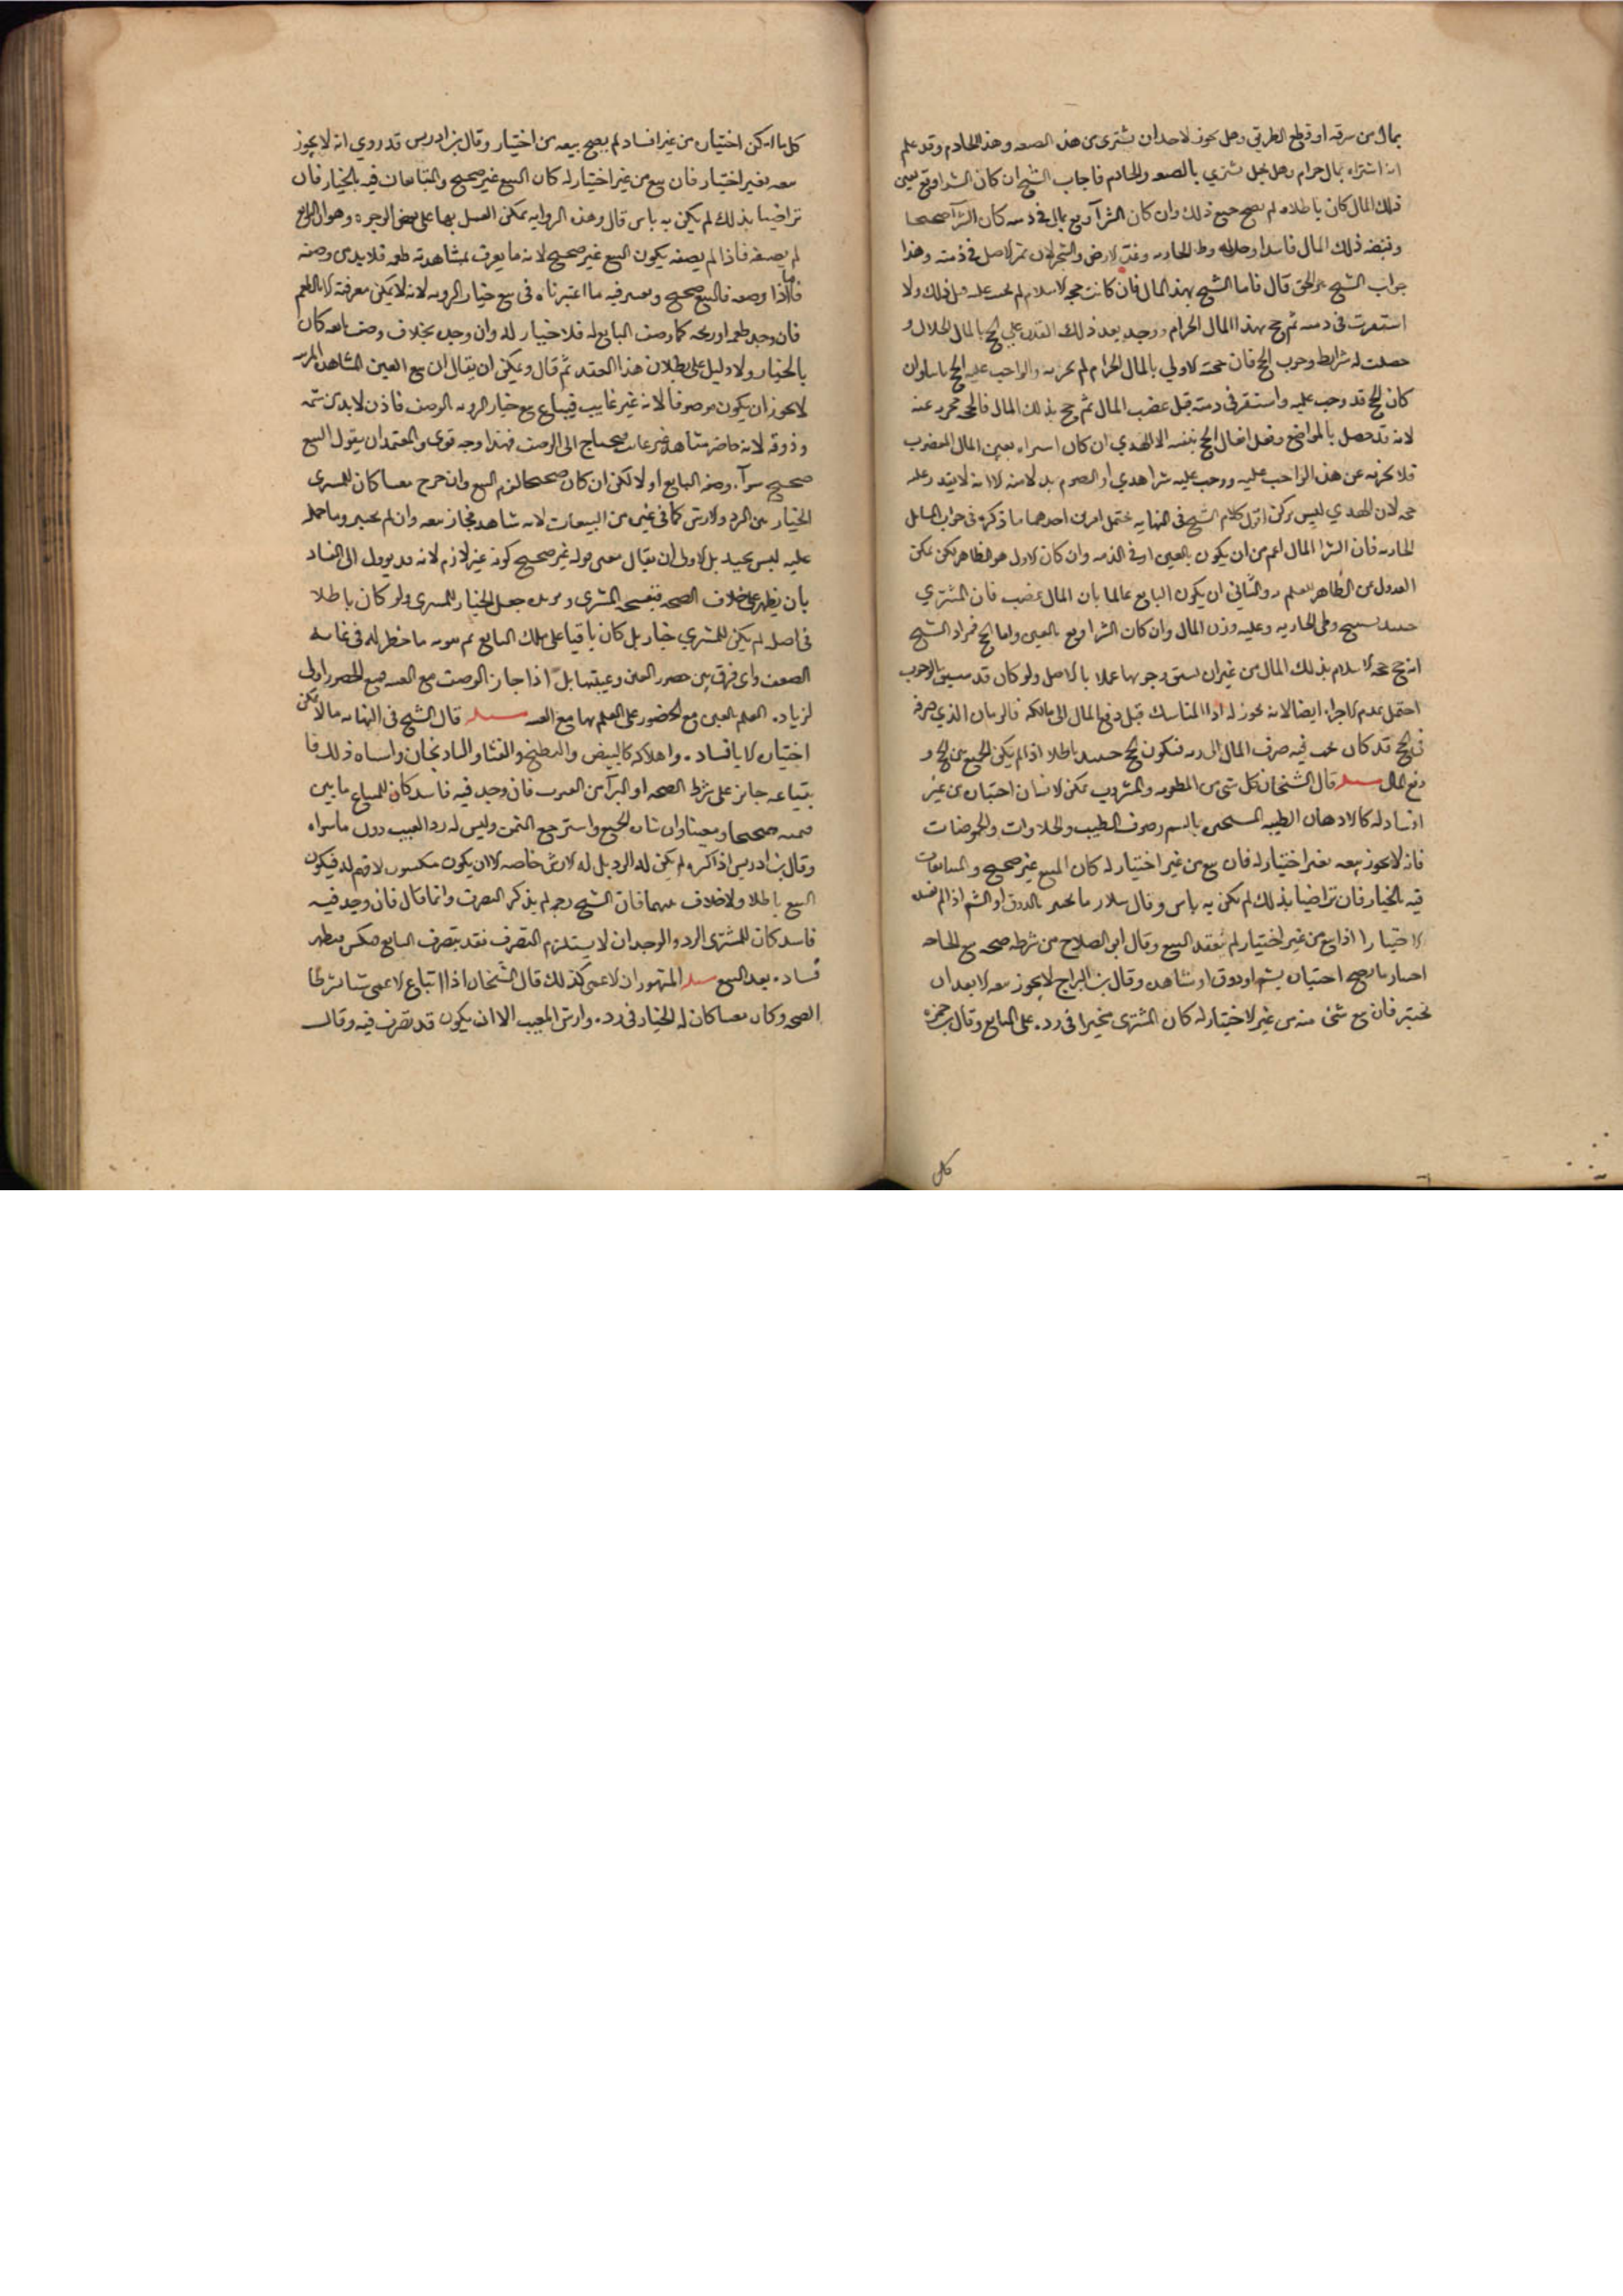 بمال من سرقه او قطع الطريق وهل يجوز لاحد ان يشترى من هذه الصعه وهذا الخادم وقد علم
انه اشتراه بمال حرام وهل يحل يشتري بالصعه والخادم فاجاب الشيخ ان كان الشرا وقع بعين
ذلك المال كان باطلا ولم يصح جميع ذلك وان كان الشرآ وقع بمال في ذمته كان الشرآ صحيحا
وقبضه ذلك المال فاسدا وحل له وطى الجاريه وغلة الارض والشجر لان ثمن الاصل في ذمته وهذا
جواب الشيخ هو الحق قال فاما الشيخ بهذا المال فان كانت حجه الاسلام لم تجب عليه قبل ذلك ولا
استقرت فى ذمته ثم حج بهذا المال الحرام ووجد بعد ذلك القدره على الحج بالمال الحلال و
حصلت له شرايط وجوب الحج فان حجته الاولي بالمال الحرام لم تجزيه والواجب عليه الحج ثانيا وان
كان الحج قد وجب عليه واستقر فى ذمته قبل غضب المال ثم حج بذلك المال فالحجه مجزيه عنه
لانه قد حصل بالمواضع وفعل افعال الحج بنفسه الا الهدي ان كان اشتراه بعين المال المغضوب
فلا يجزيه عن هذا الواجب عليه ووجب عليه شرا هدي او الصوم بدلا منه الا انه لا يفسد عليه
حجه لان الهدي ليس بركن اقول كلام الشيخ فى النهايه يحتمل امرين احدهما ما ذكره في جواب السايل
الحاديه فان الشرا المال اعم من ان يكون بالعين او في الذمه وان كان الاول هو الظاهر لكن يمكن
العدول عن الظاهر للعلم به والثاني ان يكون البايع عالما بان المال غضب فان المشتري
حينيذ يستبيح وطى الجاريه وعليه وزن المال وان كان الشرا وقع بالعين واما الحج فمراد الشيخ
انه حج حجه الاسلام بذلك المال من غير ان يسبق وجوبها عملا بالاصل ولو كان قد سبق الوجوب
احتمل عدم الاجزاء ايضا لانه يجوز له اداا المناسك قبل دفع المال الى مالكه فالزمان الذي صرفه
فى الحج قد كان يجب فيه صرف المال الى ربه فيكون الحج حينيذ باطلا اذ لم يكن الجمع بين الحج و
دفع المال مسئله قال الشيخان كل شي من المطعوم والمشروب يمكن للانسان اختباره من غير
افساد له كالادهان الطيبه المستخبره بالشم وصنوف الطيب والحلاوات والحموضات
فانه لا يجوز بيعه بغير اختبار له فان بيع من غير اختبار له كان البيع غير صحيح والمتبايعان
فيه بالخيار فان تراضيا بذلك لم يكن به باس وقال سلار ما يختبر بالذوق او الشم اذا لم يفسده
الاختبار اذا بيع من غير اختبار لم ينعقد البيع وقال ابو الصلاح من شرط صحه بيع الحاضر
اعتبار ما يصح اختباره بشم او ذوق او مشاهده وقال بن البراج لا يجوز بيعه الا بعد ان
يختبر فان بيع شئ منه من غير الاختبار له كان المشترى مخيرا فى رده على البايع وقال بن حمزه
كل
كل ما امكن اختباره من غير افساد لم يصح بيعه من اختبار وقال بن ادريس قد روي انه لا يجوز
بيعه بغير اختبار فان بيع من غير اختبار له كان البيع غير صحيح والمتبايعان فيه بالخيار فان
تراضيا بذلك لم يكن به باس قال وهذه الروايه يمكن العمل بها على بعض الوجوه وهو ان البايع
لم يصفه فاذا لم يصفه يكون البيع غير صحيح لانه ما يعرف بمشاهدته طعمه فلا بد من وصفه
فاما اذا وصفه فالبيع صحيح ويعتبر فيه ما اعتبرناه في بيع خيار الرويه لانه لا يمكن معرفته الا بالطعم
فان وجد طعمه او ريحه كما وصف البايع له فلا خيار له وان وجده بخلاف وصف بايعه كان
بالخيار ولا دليل على بطلان هذا العقد ثم قال ويمكن ان يقال ان بيع العين المشاهده المرييه
لا يجوز ان يكون موصوفا لانه غير غايب فيباع بيع خيار الرويه الوصف فاذن لا بد من شمه
وذوقه لانه حاضر مشاهد غير غايب فيحتاج الى الوصف فهذا وجه قوى والمعتمد ان يقول البيع
صحيح سوآء وصفه البايع او لا لكن ان كان صحيحا لزم البيع وان خرج معيبا كان للمشترى
الخيار بين الرد والارش كما في غيره من البيعات لانه شاهده فجاز بيعه وان لم يختبره وما حمله
عليه ليس بجيد بل الاولى ان يقال معنى قوله غير صحيح كونه غير لازم لانه قد يوول الى الفساد
بان يظهر على خلاف الصحه فيفسخه المشترى ويريده جعل الخيار للمشترى ولو كان باطلا
فى اصله لم يكن للمشتري خيار بل كان باقيا على ملك البايع ثم تمويه ما خطر له فى غايه
الضعف واى فرق بين حضور العين وغيبتها بل اذا جاز الوصف مع الغيبه فمع الحضور اولى
لزياده العلم بالعين مع الحضور على العلم بها مع الغيبه مسئله قال الشيخ فى النهايه ما لا يمكن
اختباره الا بافساده واهلاكه كالبيض والبطيخ والقثا والبادنجان واشباه ذلك فا
بتياعه جايز على شرط الصحه او البرآه من العيوب فان وجد فيه فاسد كان للمبتاع ما بين
قيمته صحيحا ومعيبا وان شاء رد الجميع واسترجع الثمن وليس له رد المعيب دون ما سواه
وقال بن ادريس اذا كسره لم يكن له الرد بل له الارش خاصه الا ان يكون مكسوره لا قيمه له فيكون
البيع باطلا ولا خلاف بينهما فان الشيخ رحمه لم يذكر التصرف وانما قال فان وجد فيه
فاسد كان للمشترى الرد والوجدان لا يستلزم التصرف فقد يتصرف البايع فيكسر فيظهر
فساده بعد البيع مسئله المشهور ان الاعمى كذلك قال الشيخان اذا ابتاع الاعمى شيا بشرط
الصحه وكان معيبا كان له الخيار فى رده وارش المعيب الا ان يكون قد تصرف فيه وقال